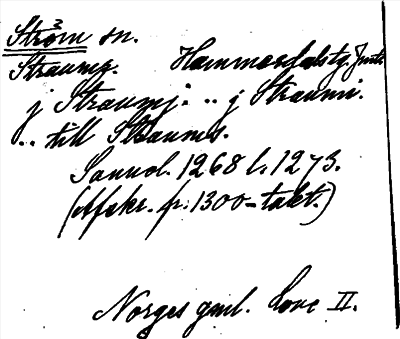 Ström sn.
Straumr. Hammerdalstg. Jmtl.
j Straumj. .. j Straumi.
.. till Straums.
Sannol. 1268 l. 1273.
(Afskr. fr. 1300-talet.)
Norges gml. Love II.